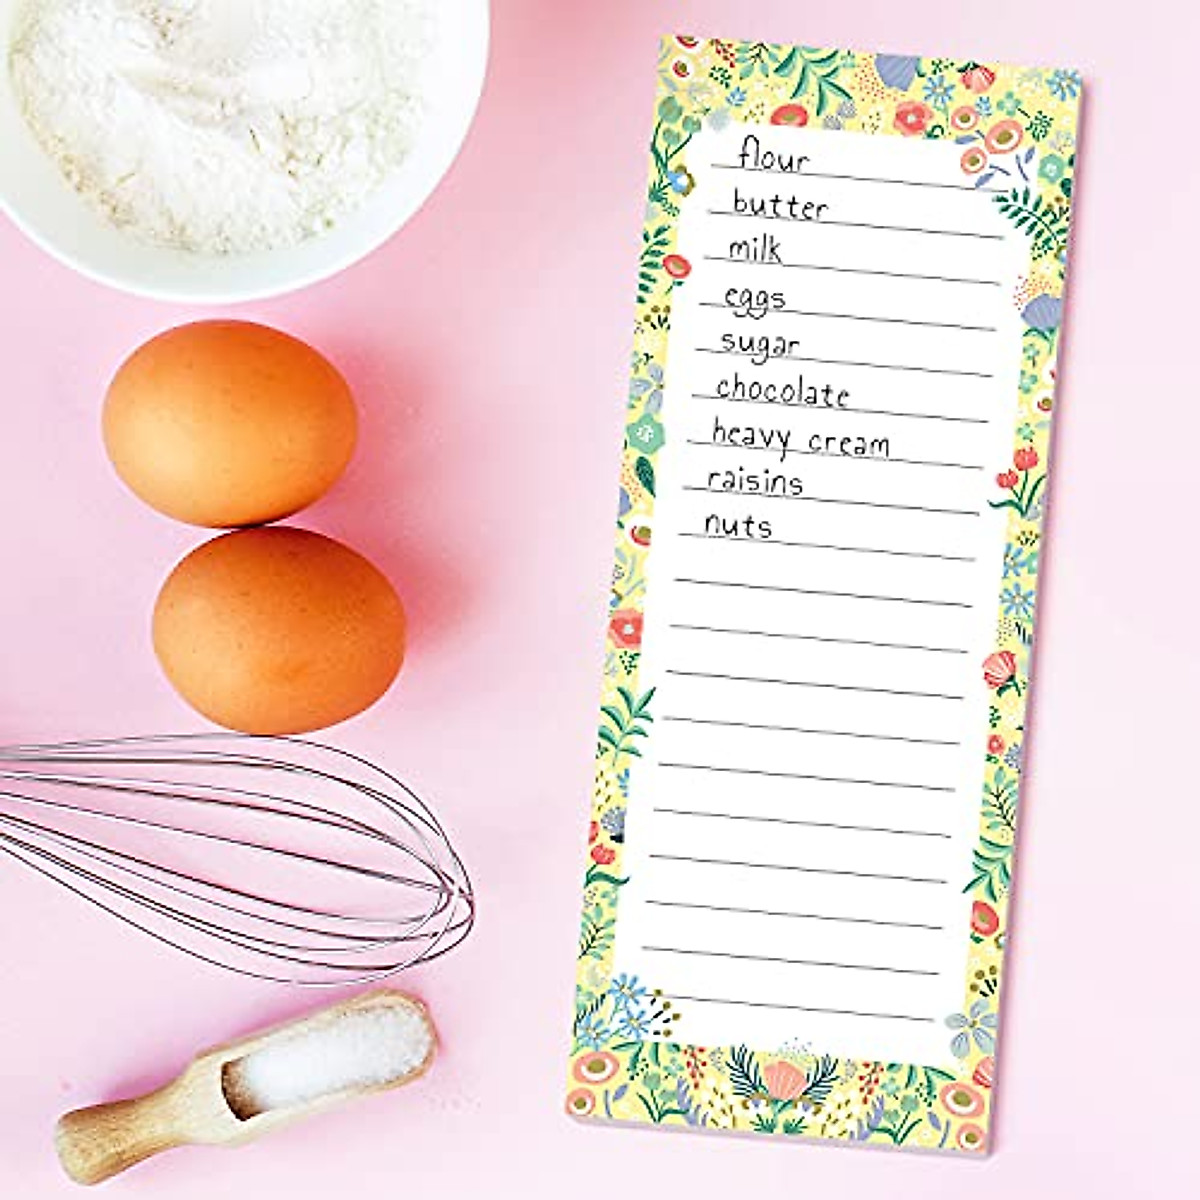 flour
butter
milk
eggs
sugar
chocolate
heavy cream
raisins
nuts